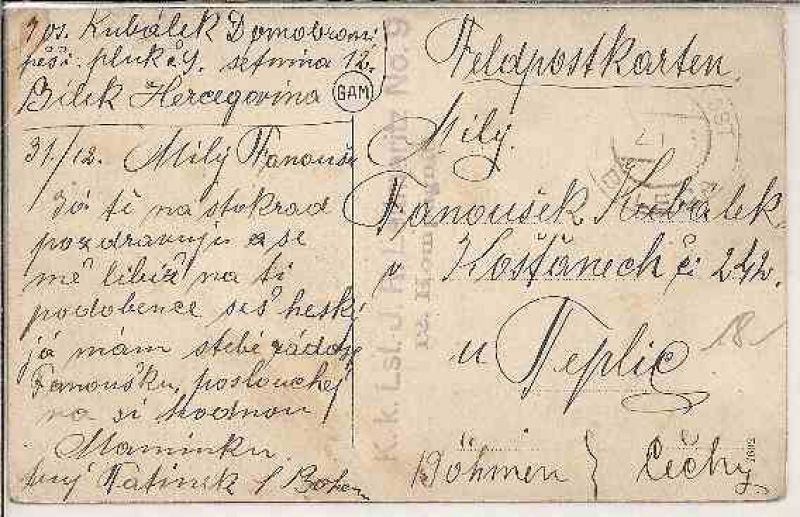 Jos. Kubálek Domobranní
pěší. pluk č 9. setnina 12.
Bilek Hercegovina
GAM
31./12. Milý Fanouši
Já tě na stokrad
pozdravuju a se
mě libíš na ti
podobence seš heskí
já mám stebe rádost
Fanoušku, poslouchej
na si hodnou
Maminku.
tvůj Tatinek
Feldpostkarten
Milý
Fanoušek Kubálek
v Košťanech či 242.
u Teplic
18
Böhmen } Čechy
K. k. Lst. J. R. Leitmeritz No. 9
12. Komp